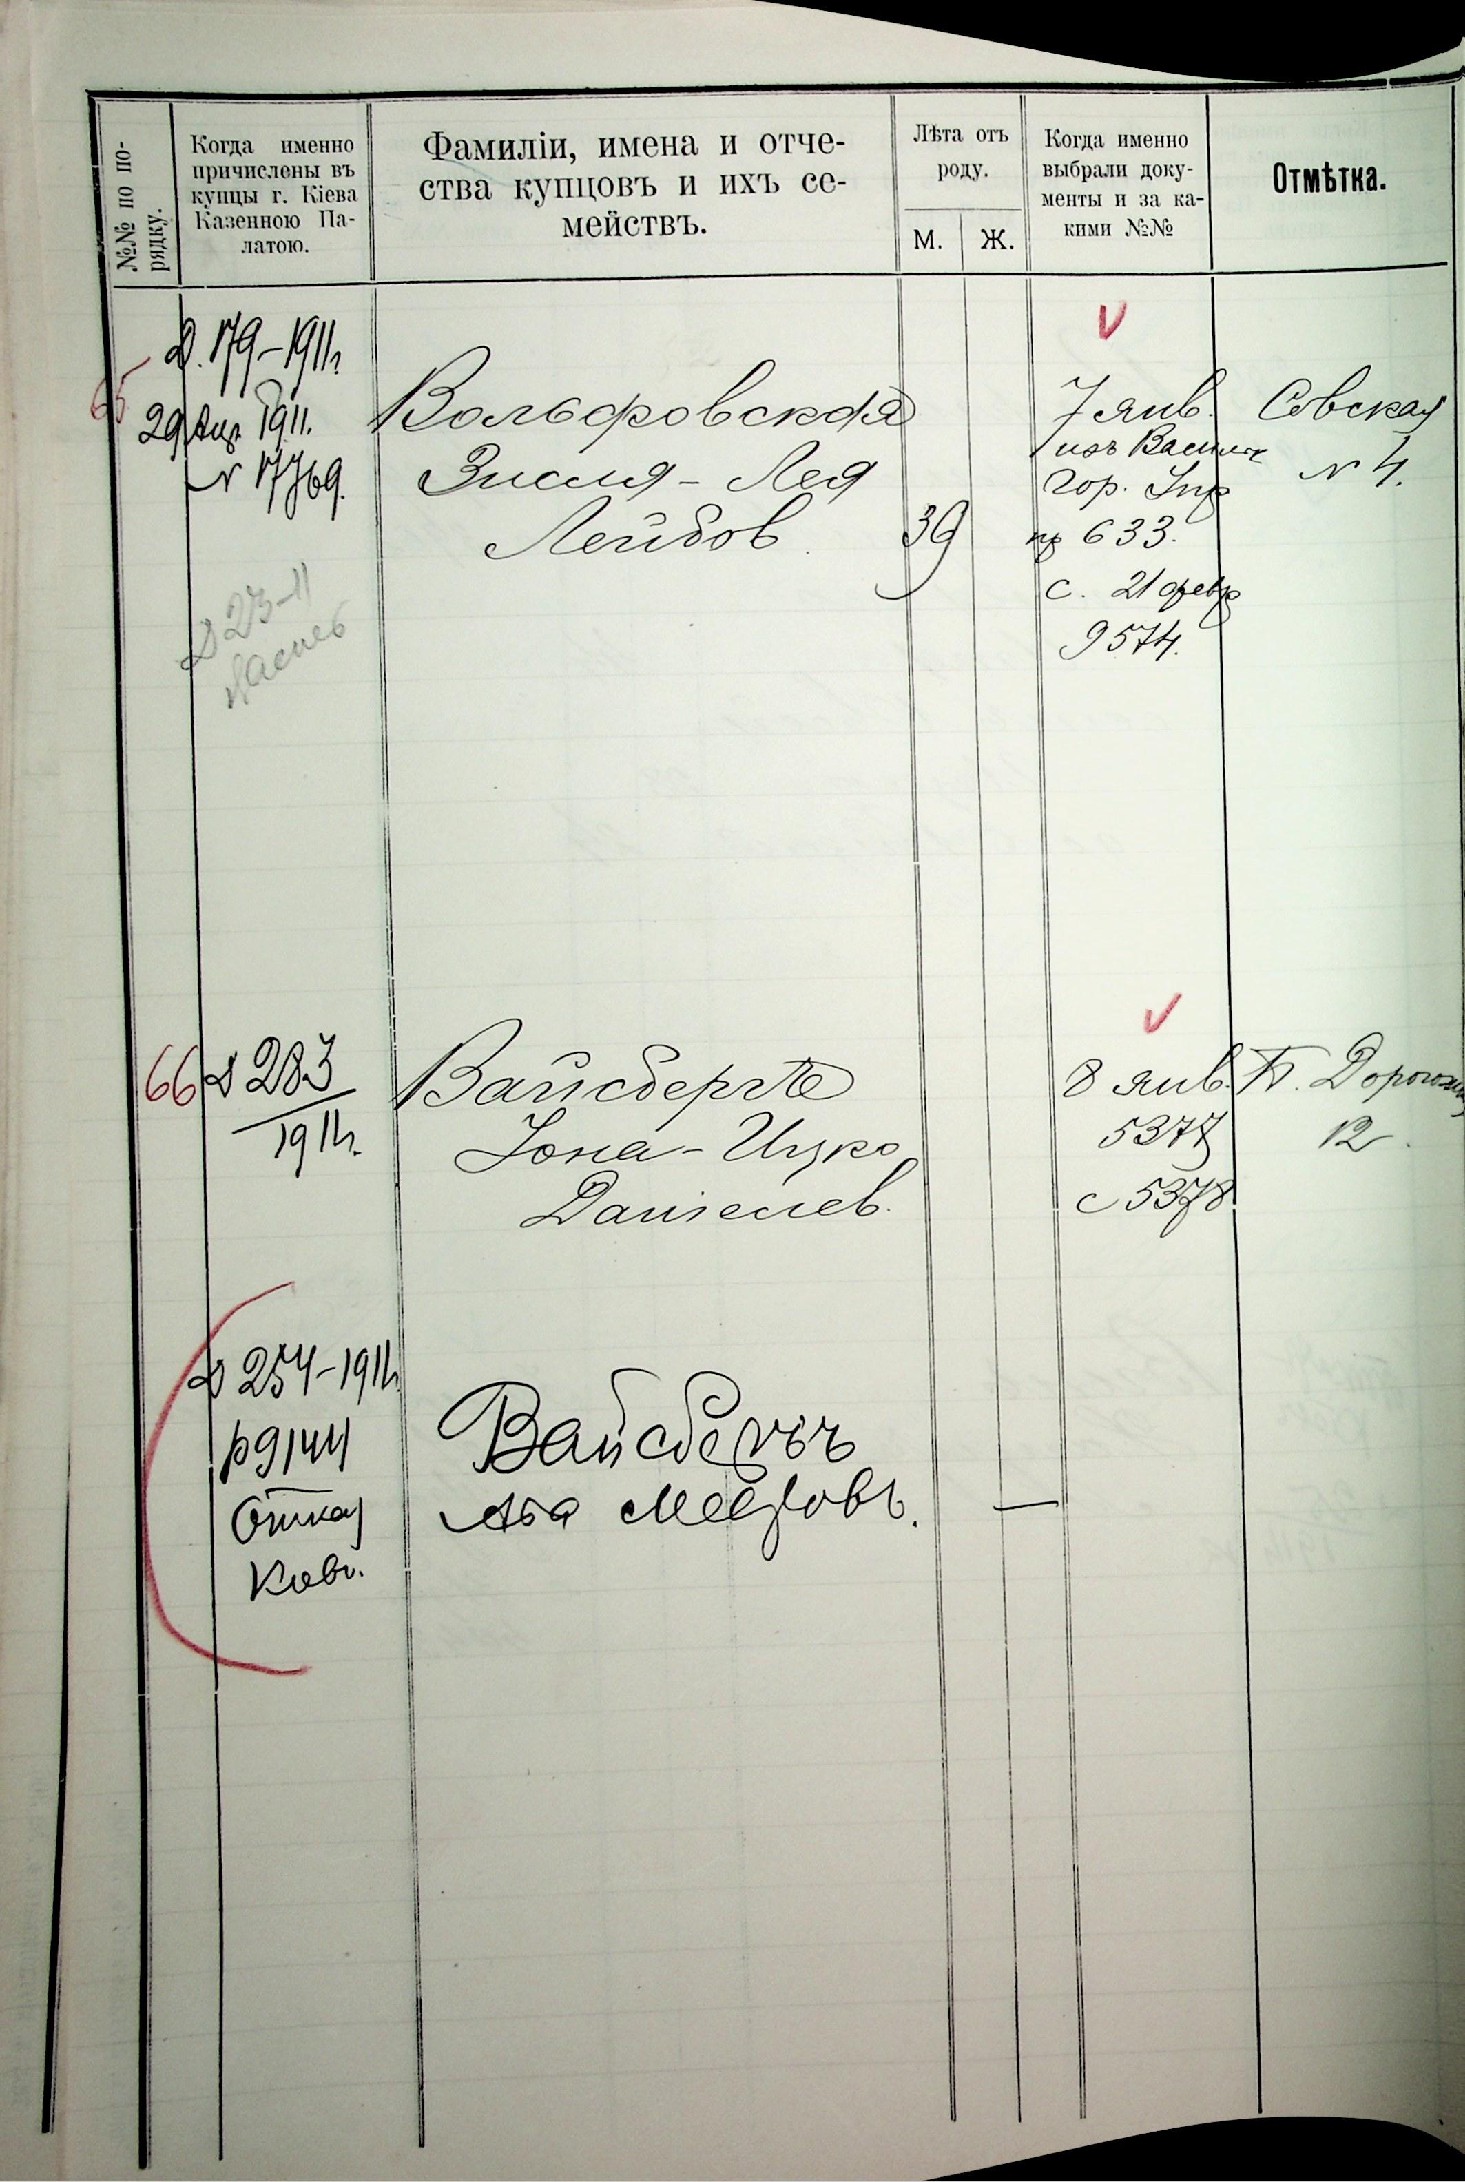 №№ по по-
рядку.
Когда именно
причислены въ
купцы г. Кіева
Казенною Па-
латою.
Фамиліи, имена и отче-
ства купцовъ и ихъ се-
мействъ.
Лѣта отъ
роду.
М.
Ж.
Когда именно
выбрали доку-
менты и за ка-
кими №№
Отмѣтка.
65
Д. 179-1911г.
29 Апр. 1911.
N 17769.
Д 273-11
Вольфовская
Зисля-Лея
Лейбов.
39
7 янв.
изъ
Гор. Упр
633.
с. 21 февр
9574.
Совская
N 4.
66
Д 283
1911г.
Вайсбергъ
Іона-Ицко
Даніелев.
8 янв.
5377
с 5378
Б. Дорогожиц
12.
Д 254-1911г.
р 9144
Отказ
Вайсбергъ
Аба Мееровъ.
—